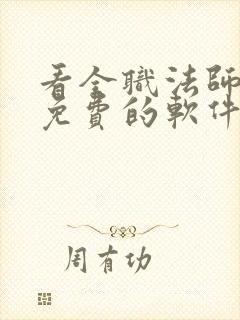 看全職法師
免費的軟件
周有功